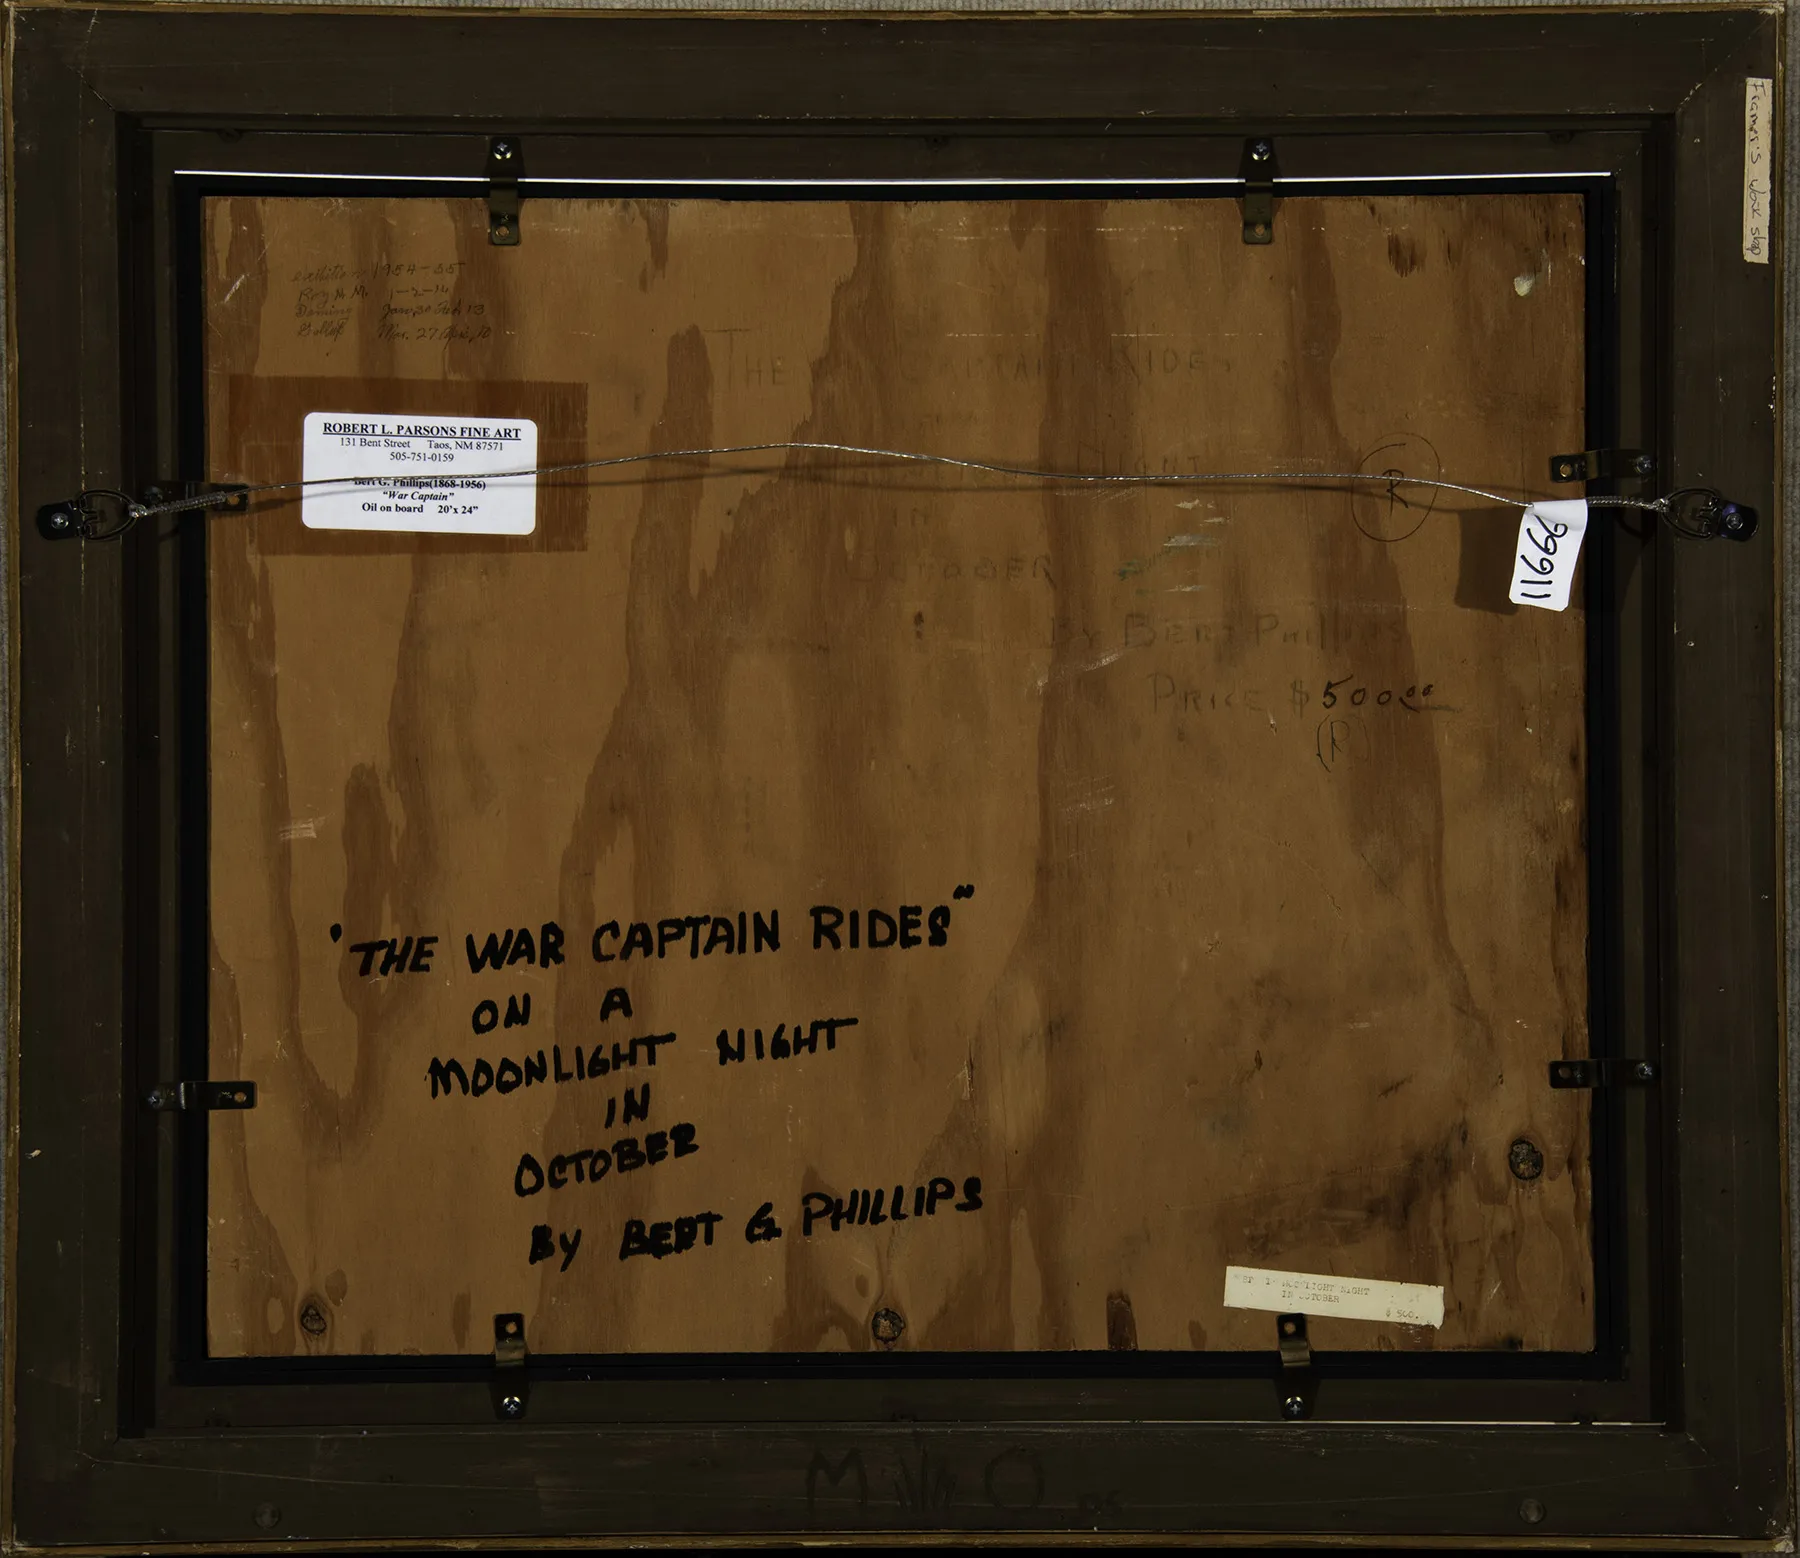 Framer's Work Shop
exhibition 1954-55
Roy N.M. 1-2-14
Deming Jan 30 Feb 13
Gallup Mar. 27
THE CAPTAIN RIDES
NIGHT
IN
OCTOBER
BY BERT PHILLIPS
PRICE $500.00
R
R
ROBERT L. PARSONS FINE ART
131 Bent Street Taos, NM 87571
505-751-0159
Bert G. Phillips(1868-1956)
"War Captain"
Oil on board 20'x 24"
11666
'THE WAR CAPTAIN RIDES"
ON A
MOONLIGHT NIGHT
IN
OCTOBER
BY BERT G PHILLIPS
MOONLIGHT NIGHT
IN OCTOBER
$ 500.